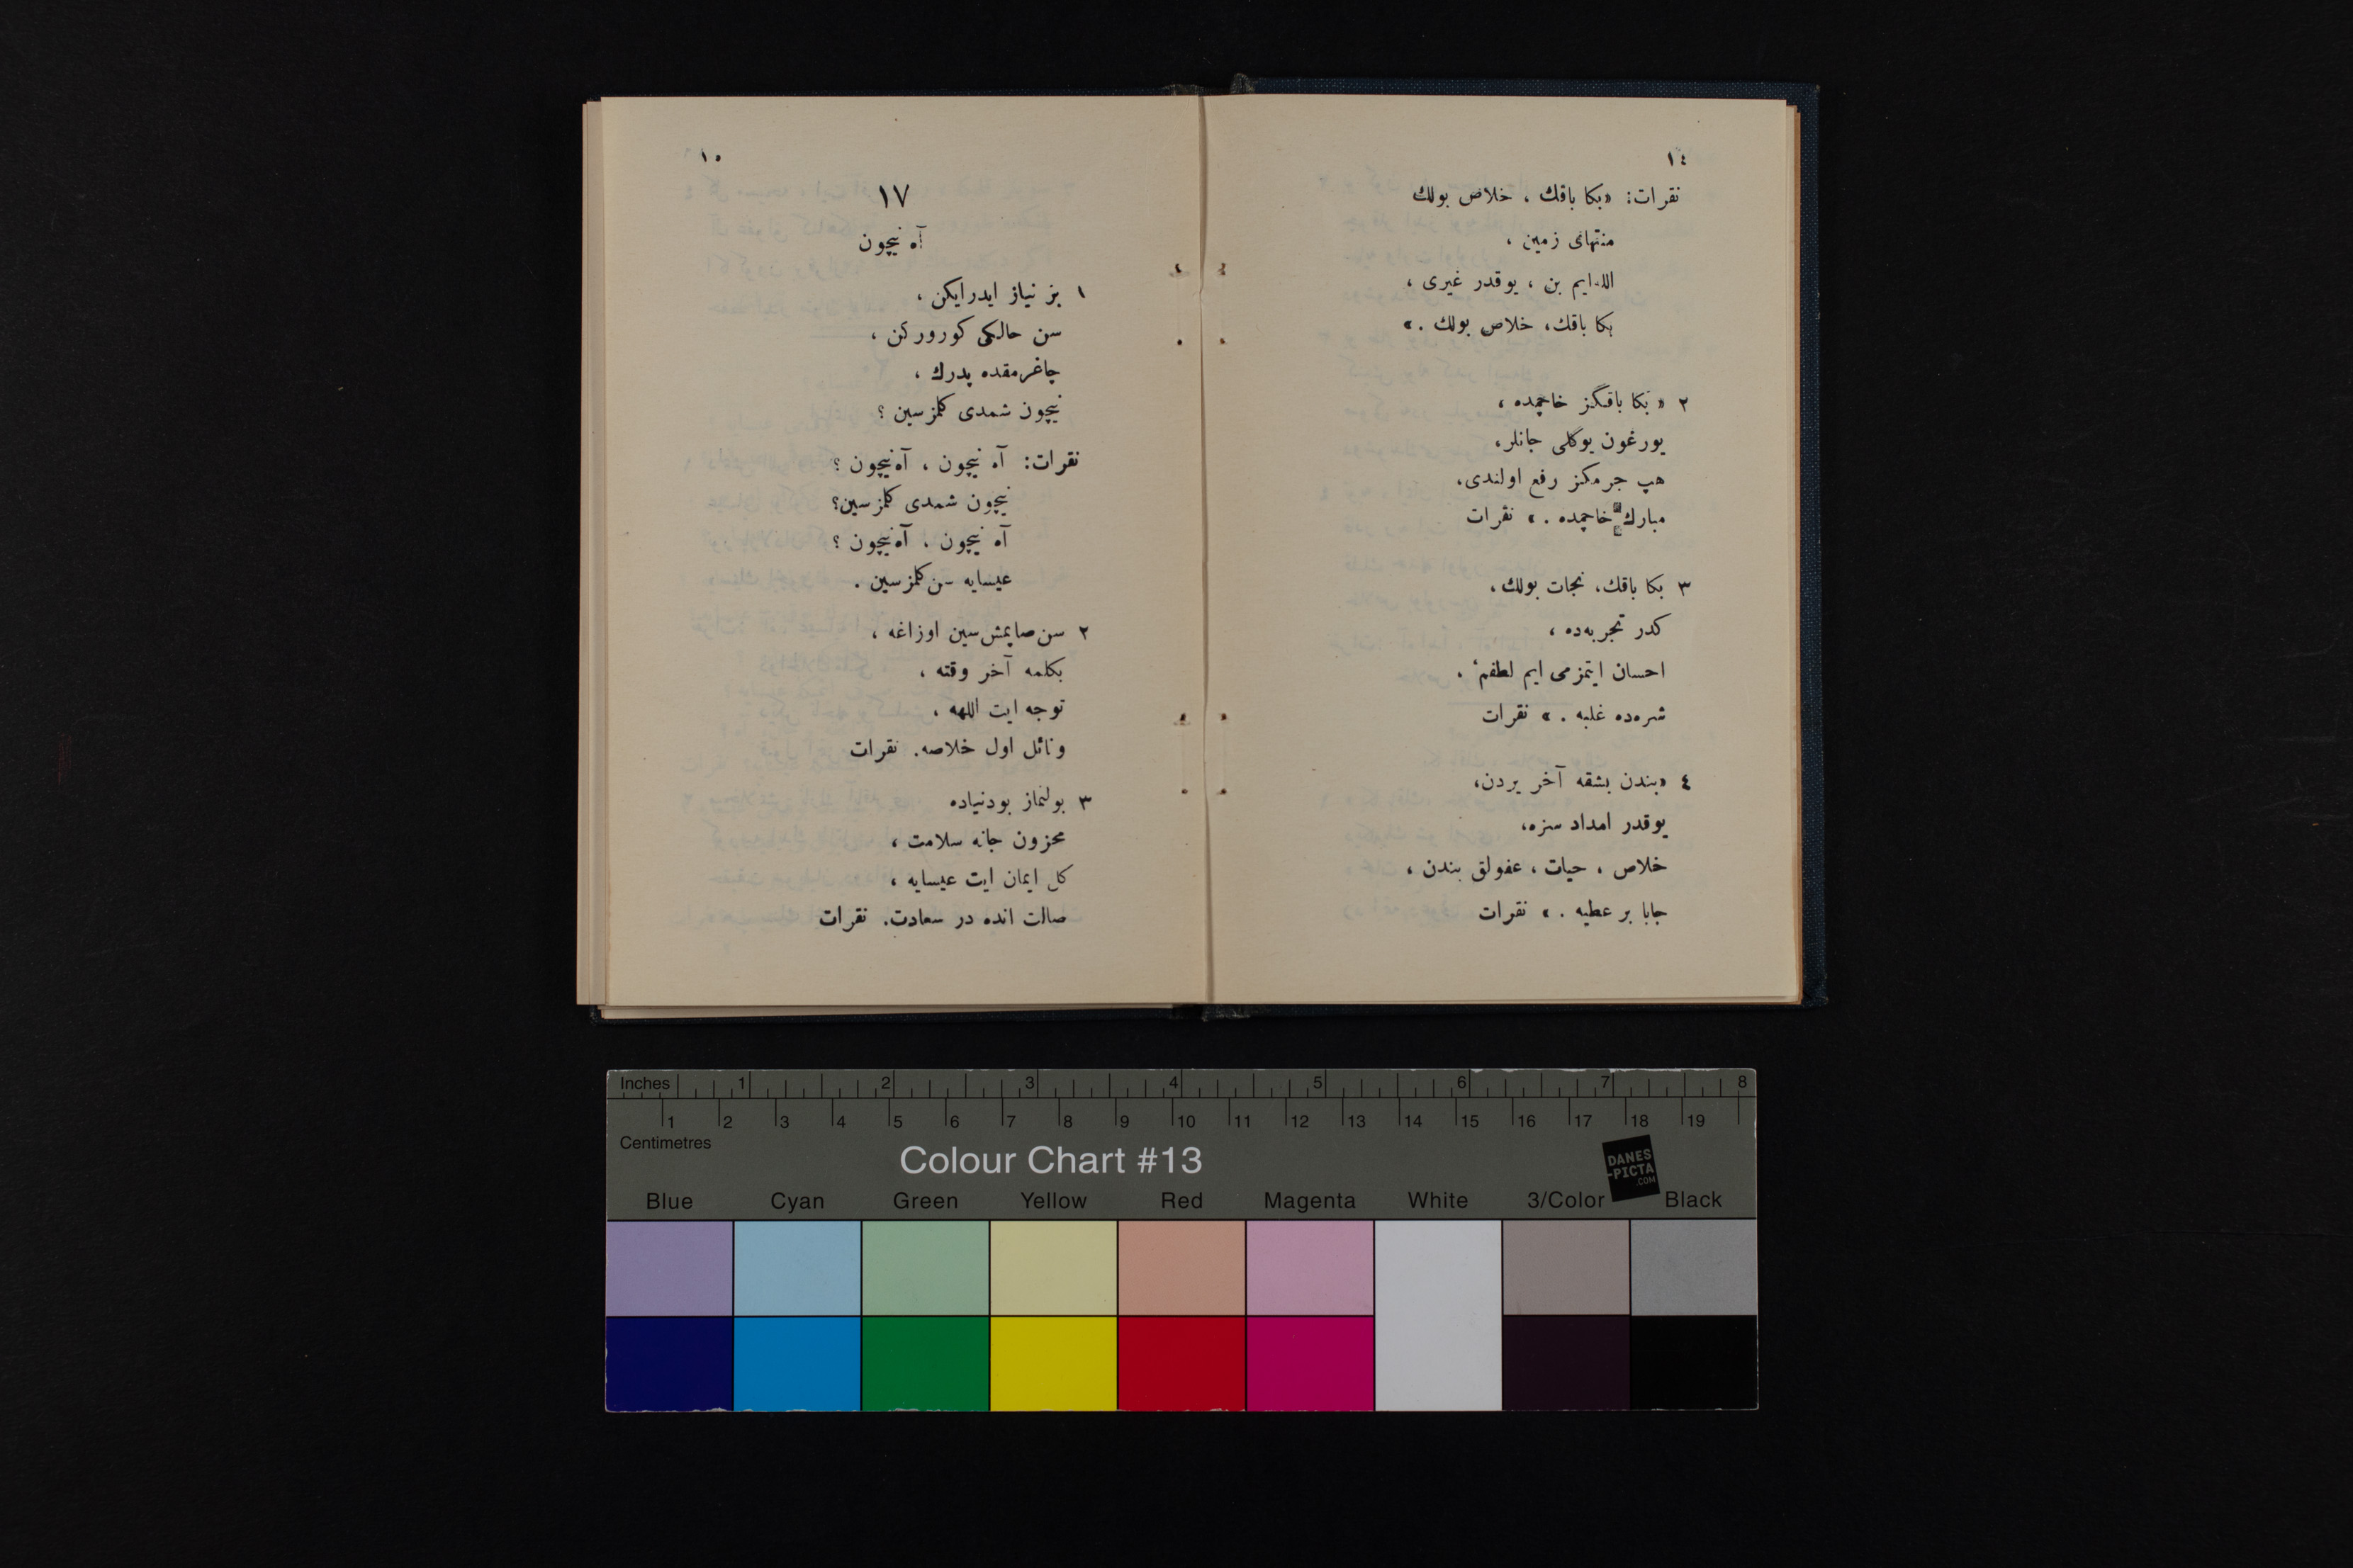 ١٤
نقرات: «بكا باقك ، خلاص بولك
منتهائی زمین ،
الله‌ایم بن ، یوقدر غیری ،
بكا باقك، خلاص بولك .»
٢ « بكا باقكز خاچمده ،
یورغون یوكلی جانلر،
هپ جرمكز رفع اولندی،
مبارك خاچمده .» نقرات
٣ بكا باقك، نجات بولك،
كدر تجربه‌ده ،
احسان ایتمزمی ایم لطفم ،
شره‌ده غلبه .» نقرات
٤ «بندن بشقه آخر یردن،
یوقدر امداد سزه،
خلاص ، حیات ، عفولق بندن ،
جابا بر عطیه .» نقرات
١٥
١٧
آه نیچون
١ بز نیاز ایدرایكن ،
سن حالكی كورورکن ،
چاغرمقده پدرك ،
نیچون شمدی كلمزسین ؟
نقرات: آه نیچون ، آه نیچون ؟
نیچون شمدی كلمزسین؟
آه نیچون ، آه نیچون ؟
عیسایه سن كلمزسین .
٢ سن صاپمش‌سین اوزاغه ،
بكلمه آخر وقته ،
توجه ایت اللهه ،
ونائل اول خلاصه. نقرات
٣ بولنماز بودنیاده
محزون جانه سلامت ،
كل ایمان ایت عیسایه ،
صالت انده در سعادت. نقرات
Inches 1 2 3 4 5 6 7 8
1 2 3 4 5 6 7 8 9 10 11 12 13 14 15 16 17 18 19
Centimetres
Colour Chart #13
DANES
-PICTA
.COM
Blue Cyan Green Yellow Red Magenta White 3/Color Black